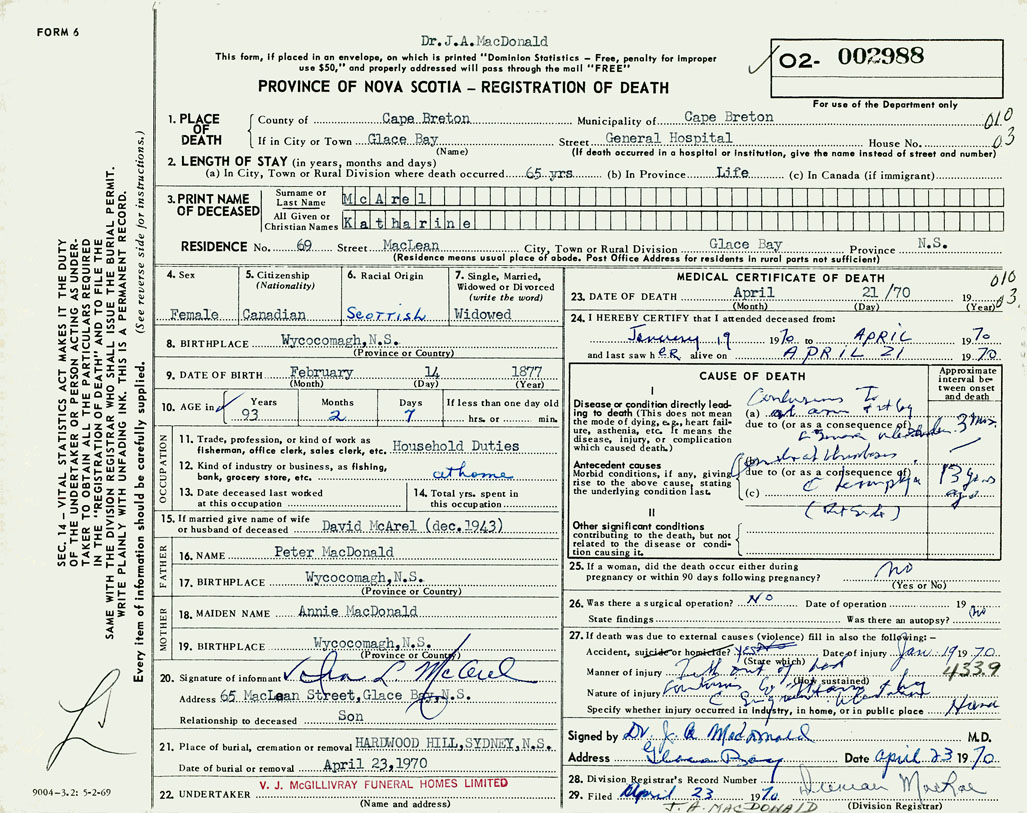 FORM 6
Dr.J.A.MacDonald
This form, if placed in an envelope, on which is printed "Dominion Statistics – Free, penalty for improper
use $50," and properly addressed will pass through the mail "FREE"
O2- 002988
For use of the Department only
PROVINCE OF NOVA SCOTIA – REGISTRATION OF DEATH
SEC. 14 – VITAL STATISTICS ACT MAKES IT THE DUTY
OF THE UNDERTAKER OR PERSON ACTING AS UNDER-
TAKER TO OBTAIN ALL THE PARTICULARS REQUIRED
IN THE "REGISTRATION OF DEATH" AND TO FILE THE
SAME WITH THE DIVISION REGISTRAR WHO SHALL ISSUE THE BURIAL PERMIT.
WRITE PLAINLY WITH UNFADING INK. THIS IS A PERMANENT RECORD.
Every item of information should be carefully supplied. (See reverse side for instructions.)
1. PLACE OF DEATH County of Cape Breton Municipality of Cape Breton 010
If in City or Town Glace Bay Street General Hospital House No. 03
(Name) (If death occurred in a hospital or institution, give the name instead of street and number)
2. LENGTH OF STAY (in years, months and days)
(a) In City, Town or Rural Division where death occurred 65 yrs (b) In Province Life (c) In Canada (if immigrant)
3. PRINT NAME OF DECEASED Surname or Last Name McArel
All Given or Christian Names Katharine
RESIDENCE No. 69 Street MacLean City, Town or Rural Division Glace Bay Province N.S.
(Residence means usual place of abode. Post Office Address for residents in rural parts not sufficient)
4. Sex Female
5. Citizenship (Nationality) Canadian
6. Racial Origin Scottish
7. Single, Married, Widowed or Divorced (write the word) Widowed
8. BIRTHPLACE Wycocomagh,N.S.
(Province or Country)
9. DATE OF BIRTH February 14 1877
(Month) (Day) (Year)
10. AGE in Years 93 Months 2 Days 7 If less than one day old hrs. or min.
OCCUPATION
11. Trade, profession, or kind of work as
fisherman, office clerk, sales clerk, etc. Household Duties
12. Kind of industry or business, as fishing,
bank, grocery store, etc. at home
13. Date deceased last worked
at this occupation
14. Total yrs. spent in
this occupation
15. If married give name of wife
or husband of deceased David McArel (dec.1943)
FATHER
16. NAME Peter MacDonald
17. BIRTHPLACE Wycocomagh,N.S.
(Province or Country)
MOTHER
18. MAIDEN NAME Annie MacDonald
19. BIRTHPLACE Wycocomagh,N.S.
(Province or Country)
20. Signature of informant McArel
Address 65 MacLean Street,Glace Bay,N.S.
Relationship to deceased Son
21. Place of burial, cremation or removal HARDWOOD HILL,SYDNEY,N.S.
Date of burial or removal April 23,1970
22. UNDERTAKER V. J. McGILLIVRAY FUNERAL HOMES LIMITED
(Name and address)
9004-3.2: 5-2-69
MEDICAL CERTIFICATE OF DEATH
010
23. DATE OF DEATH April 21 /70 19 03
(Month) (Day) (Year)
24. I HEREBY CERTIFY that I attended deceased from:
January 19 1970 to APRIL 1970
and last saw hER alive on APRIL 21 1970
CAUSE OF DEATH
Approximate interval between onset and death
I
Disease or condition directly leading to death (This does not mean the mode of dying, e.g., heart failure, asthenia, etc. It means the disease, injury, or complication which caused death.)
(a) Contusions To
due to (or as a consequence of)
3 mos.
Antecedent causes
Morbid conditions, if any, giving rise to the above cause, stating the underlying condition last.
due to (or as a consequence of)
(c)
13 years ago
II
Other significant conditions contributing to the death, but not related to the disease or condition causing it.
25. If a woman, did the death occur either during
pregnancy or within 90 days following pregnancy? No
(Yes or No)
26. Was there a surgical operation? No Date of operation 19
State findings Was there an autopsy? No
27. If death was due to external causes (violence) fill in also the following: –
Accident, suicide or homicide? yes Date of injury Jan 19 1970
(State which)
Manner of injury out of bed 4339
(How sustained)
Nature of injury
Specify whether injury occurred in industry, in home, or in public place
Signed by Dr. J A MacDonald M.D.
Address Glace Bay Date April 23 1970
28. Division Registrar's Record Number
29. Filed April 23 1970
(Division Registrar)
J. A. MACDONALD